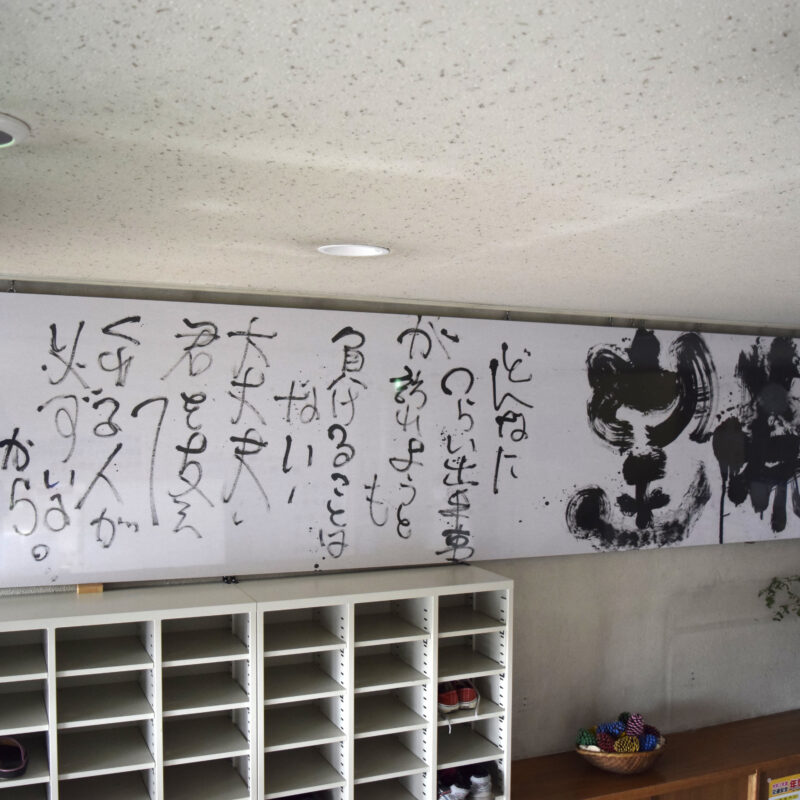 希望
どんなに
つらい出来事
が訪れようと
も
負けることは
ない、
大丈夫、
君を支え
て
くれる人が
必ずいる
から。